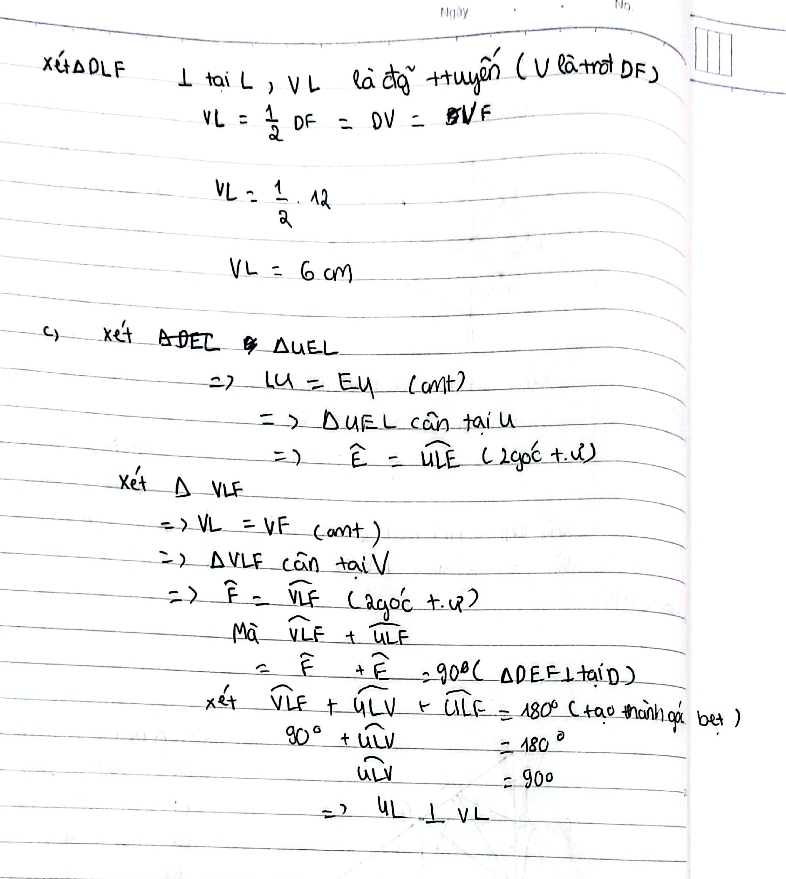 Ngày
No.
xét ΔDLF ⊥ tại L, VL là đg̃ ttuyến (V là trđt DF)
VL = 1/2 DF = DV = VF
VL = 1/2 . 12
VL = 6 cm
c) xét ΔUEL
=> LU = EU (cmt)
=> ΔUEL cân tại U
=> Ê = ULE (2góc t.ư)
xét Δ VLF
=> VL = VF (cmt)
=> ΔVLF cân tại V
=> F̂ = VLF (2góc t.ư)
Mà VLF + ULE
= F̂ + Ê = 90⁰ (ΔDEF⊥tại D)
xét VLF + ULV + ULE = 180⁰ (tạo thành góc bẹt)
90⁰ + ULV = 180⁰
ULV = 90⁰
=> UL ⊥ VL